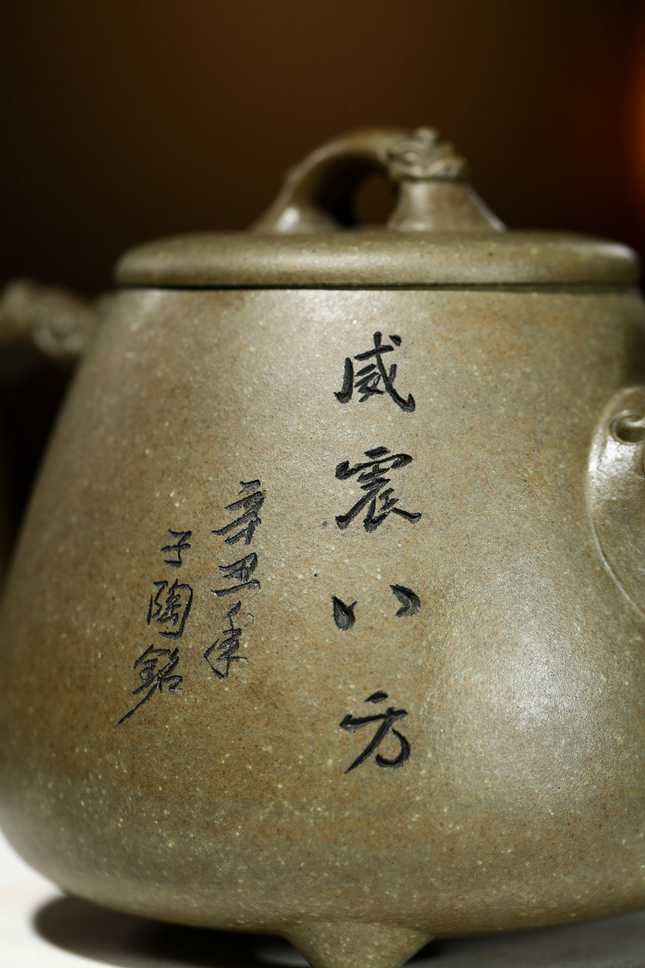 威震八方
辛丑年
子陶銘